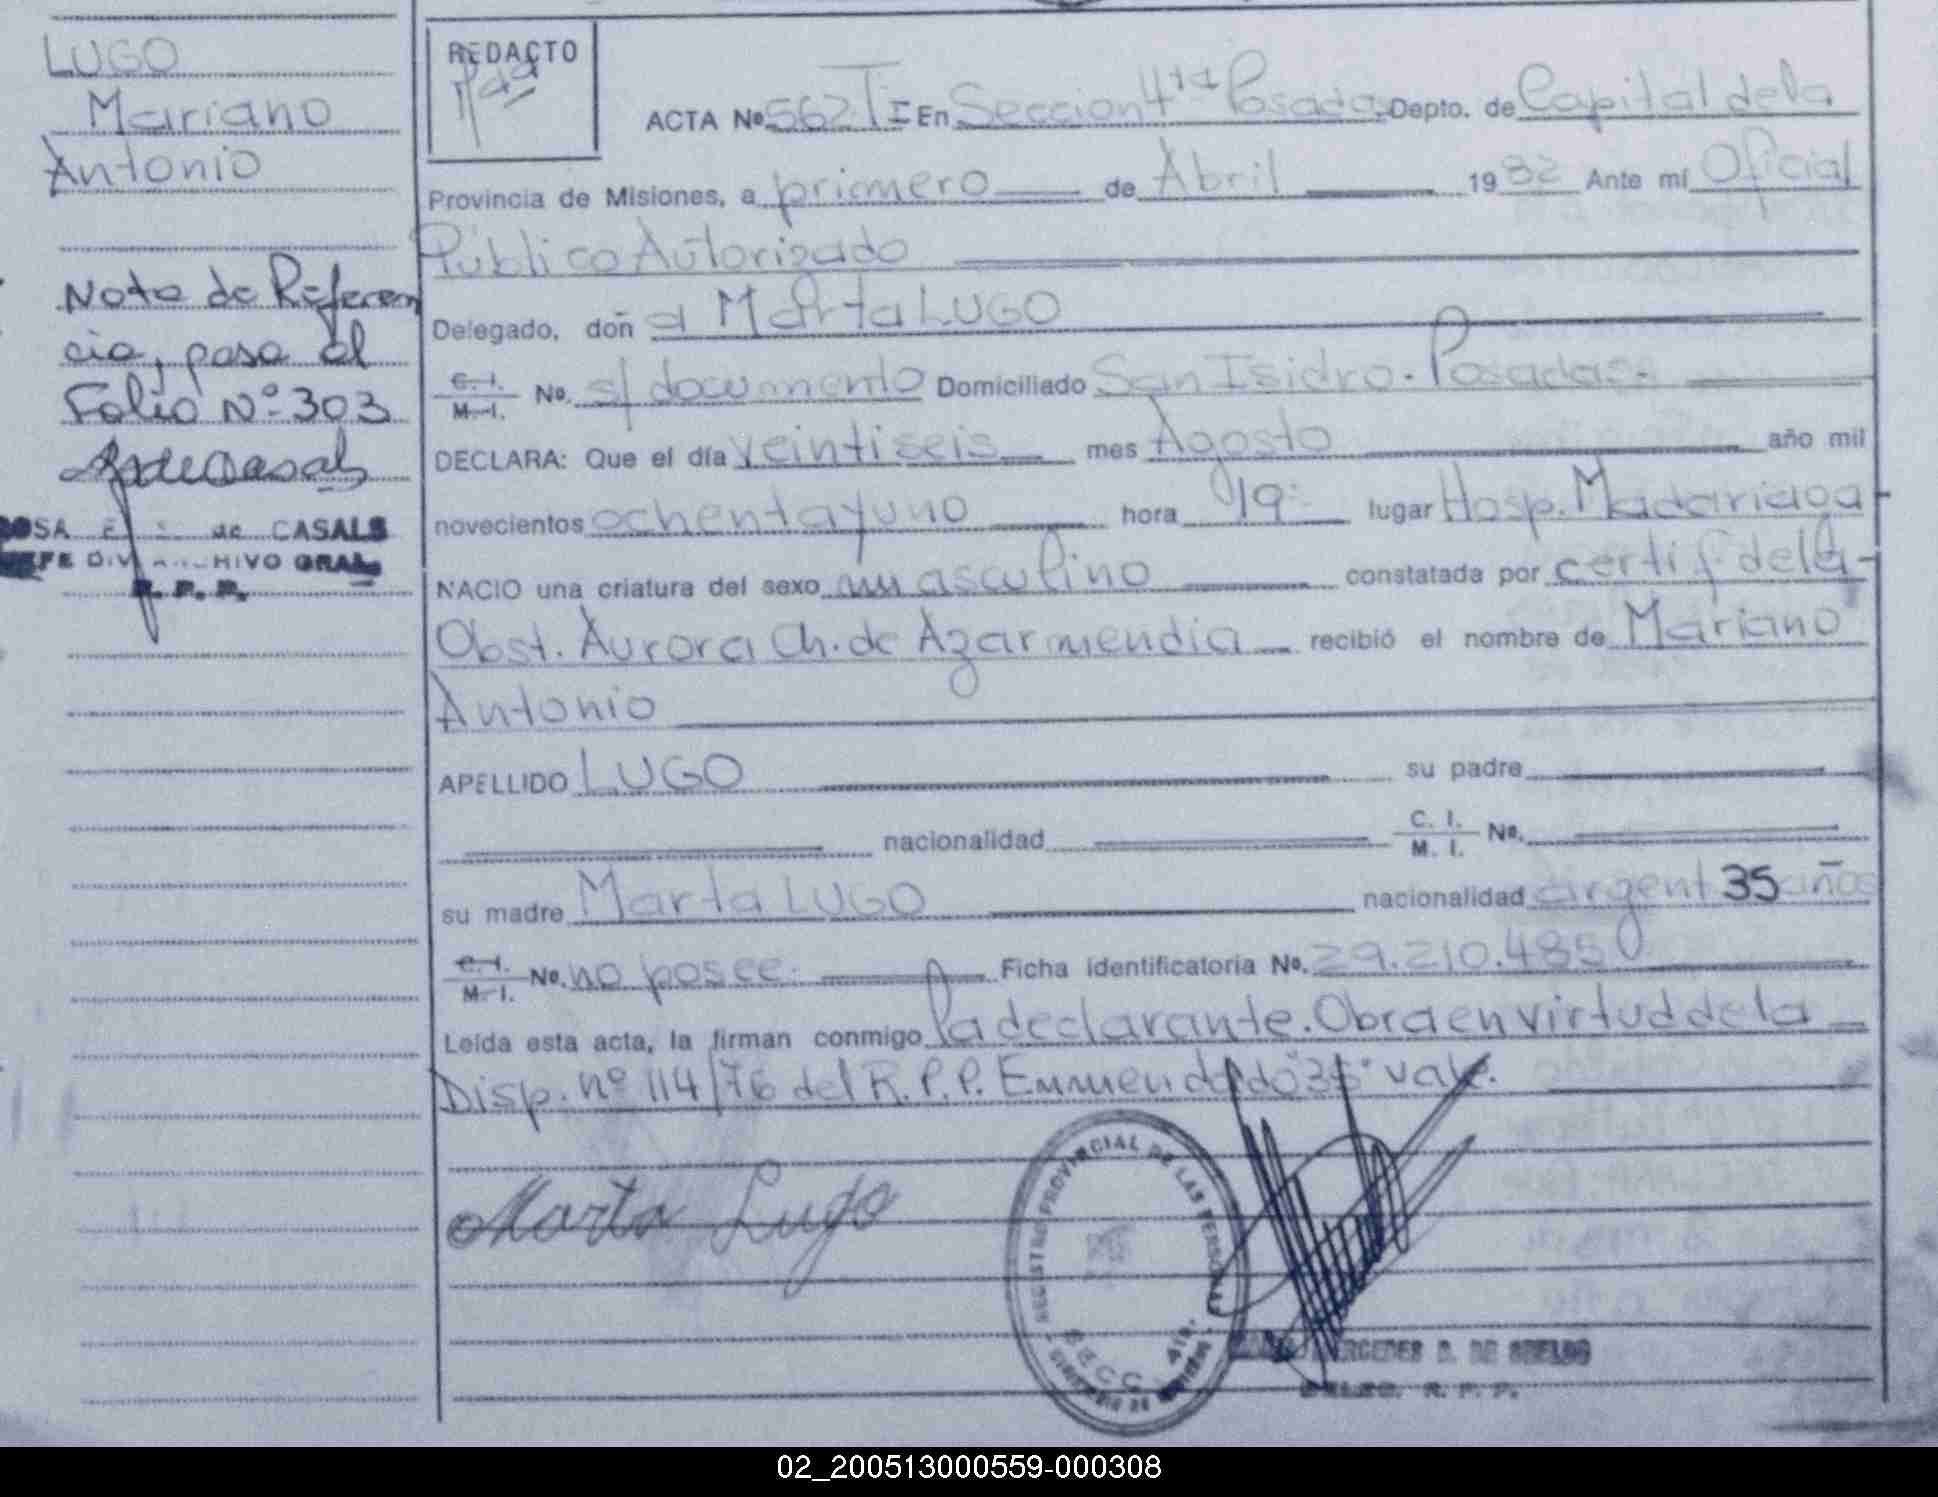 LUGO
Mariano
Antonio
Nota de Referen
cia, pasa al
Folio Nº 303
de CASALS
R. P. P.
REDACTO
ACTA Nº 562 T I En Sección 4ta Posadas Depto. de Capital de la
Provincia de Misiones, a primero de Abril 1982 Ante mí Oficial
Público Autorizado
Delegado, doñ a Marta LUGO
C. I. M. I. No. s/documento Domiciliado San Isidro - Posadas-
DECLARA: Que el día veintiseis mes Agosto año mil
novecientos ochenta y uno hora 19: lugar Hosp. Madariaga-
NACIO una criatura del sexo masculino constatada por certif. de la-
Obst. Aurora Ch. de Azarmendia recibió el nombre de Mariano
Antonio
APELLIDO LUGO su padre
nacionalidad C. I. M. I. No.
su madre Marta LUGO nacionalidad argent 35 años
C. I. M. I. No. no posee. Ficha identificatoria No. 29.210.485
Leída esta acta, la firman conmigo la declarante. Obra en virtud de la
Disp. nº 114/76 del R.P.P. Enmendado "35" vale.
Marta Lugo
REGISTRO PROVINCIAL DE LAS PERSONAS
SECC. 4ta.
MERCEDES D. DE
R. P. P.
02_200513000559-000308